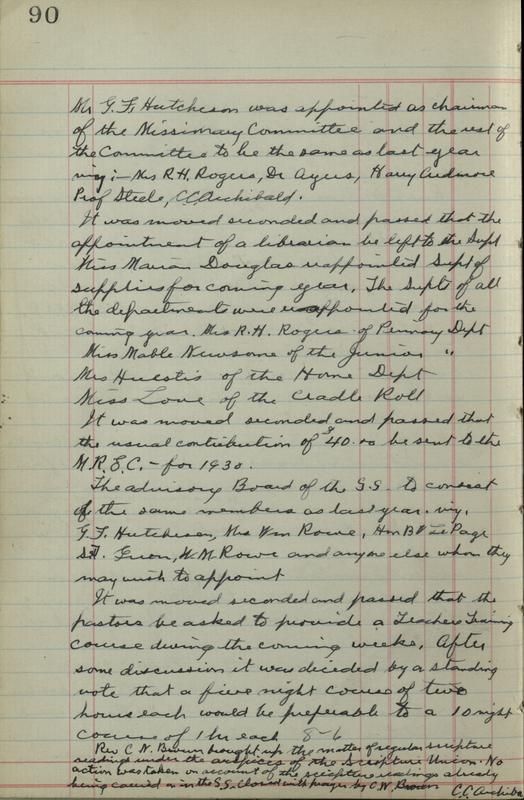 90
Mr G.F. Hutcheson was appointed as chairman
of the Missionary Committee and the rest of
the Committee to be the same as last year
viz:- Mrs R.H. Rogers, Dr Ayers, Harry Ardmore
Prof Steele, C.C. Archibald.
It was moved seconded and passed that the
appointment of a librarian be left to the Supt
Miss Marian Douglas reappointed Supt of
supplies for coming year. The Supts of all
the departments were reappointed for the
coming year. Mrs R.H. Rogers of Primary Dept
Miss Mable Newsome of the Junior "
Mrs Huestis of the Home Dept
Miss Love of the Cradle Roll
It was moved seconded and passed that
the usual contribution of $40.00 be sent to the
M.R.E.C. - for 1930.
The advisory Board of the S.S. to consist
of the same members as last year. viz.
G.F. Hutcheson, Mrs Wm Rowe, Hon B W LePage
Green, W.M. Rowe and anyone else whom they
may wish to appoint
It was moved seconded and passed that the
pastors be asked to provide a Teachers Training
course during the coming weeks. After
some discussion it was decided by a standing
vote that a five night course of two
hours each would be preferable to a 10 night
course of 1 hr each 8-6
Rev C.N. Brown brought up the matter of regular scripture
reading under the auspices of the Scripture Union. No
action was taken on account of the scripture readings already
being carried on in the S.S. Closed with prayer by C.N. Brown
C.C. Archiba